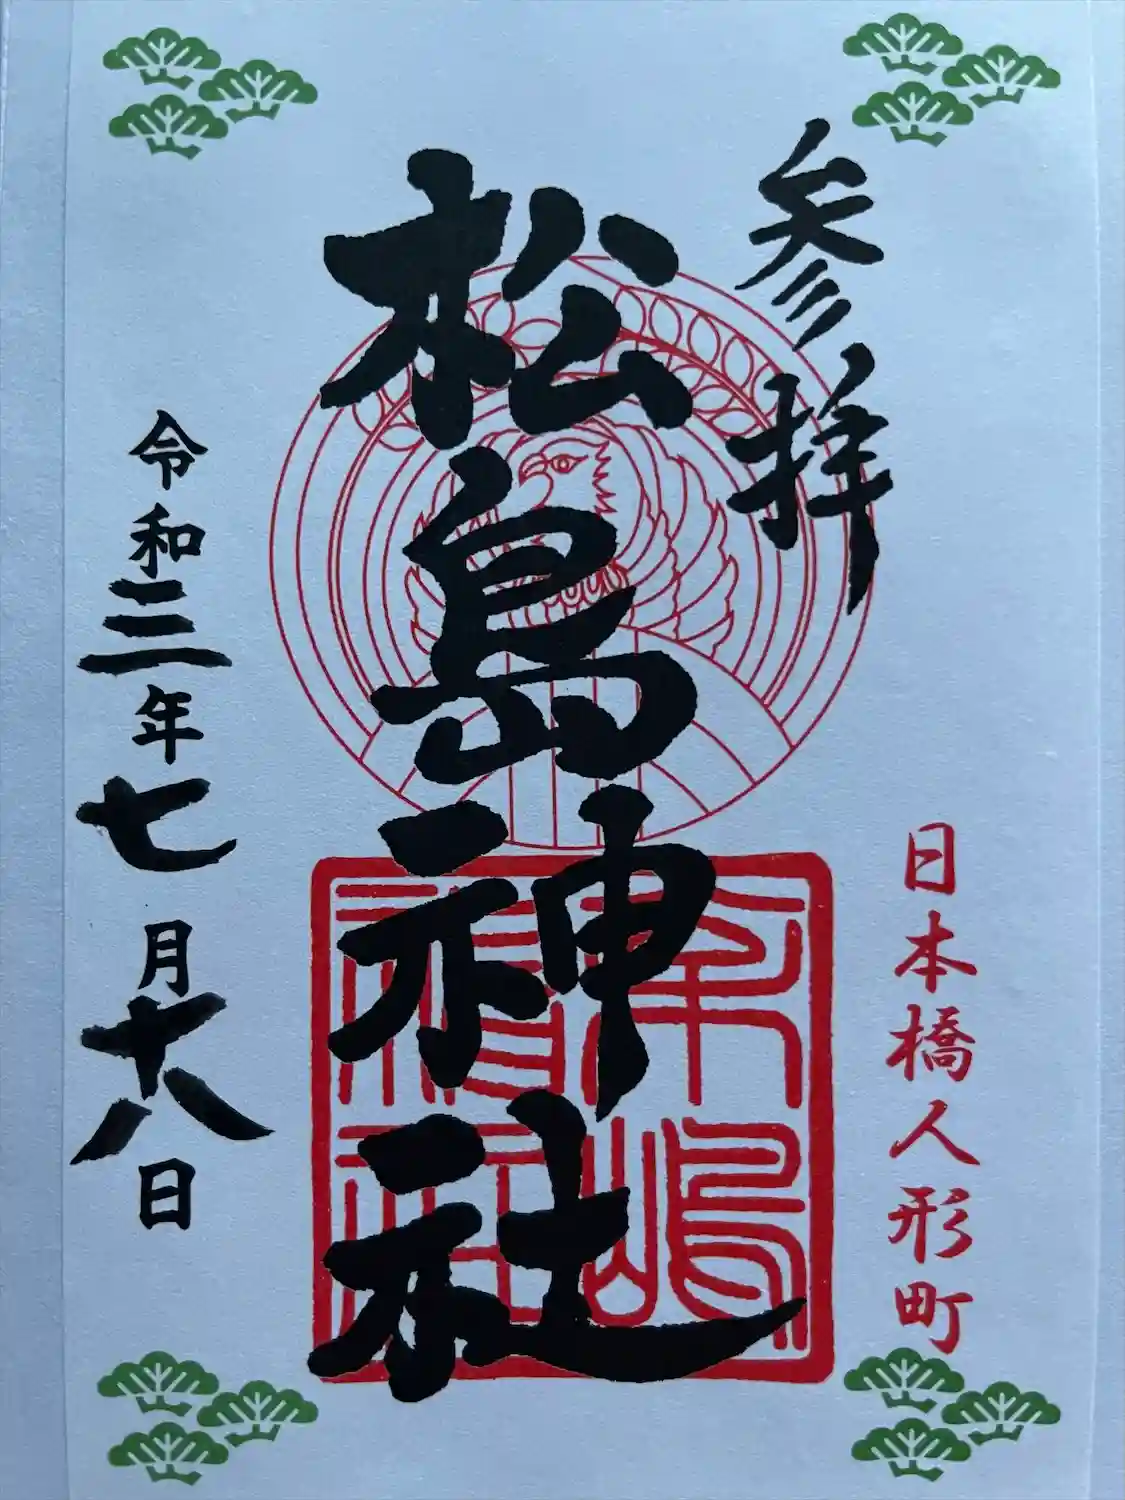 参拝
日本橋人形町
松島神社
令和三年七月十八日